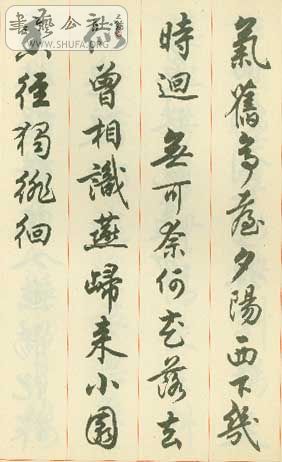 書藝公社
WWW.SHUFA.ORG
氣舊亭臺夕陽西下幾
時迴無可奈何花落去
曾相識燕歸来小園
徑獨徘徊